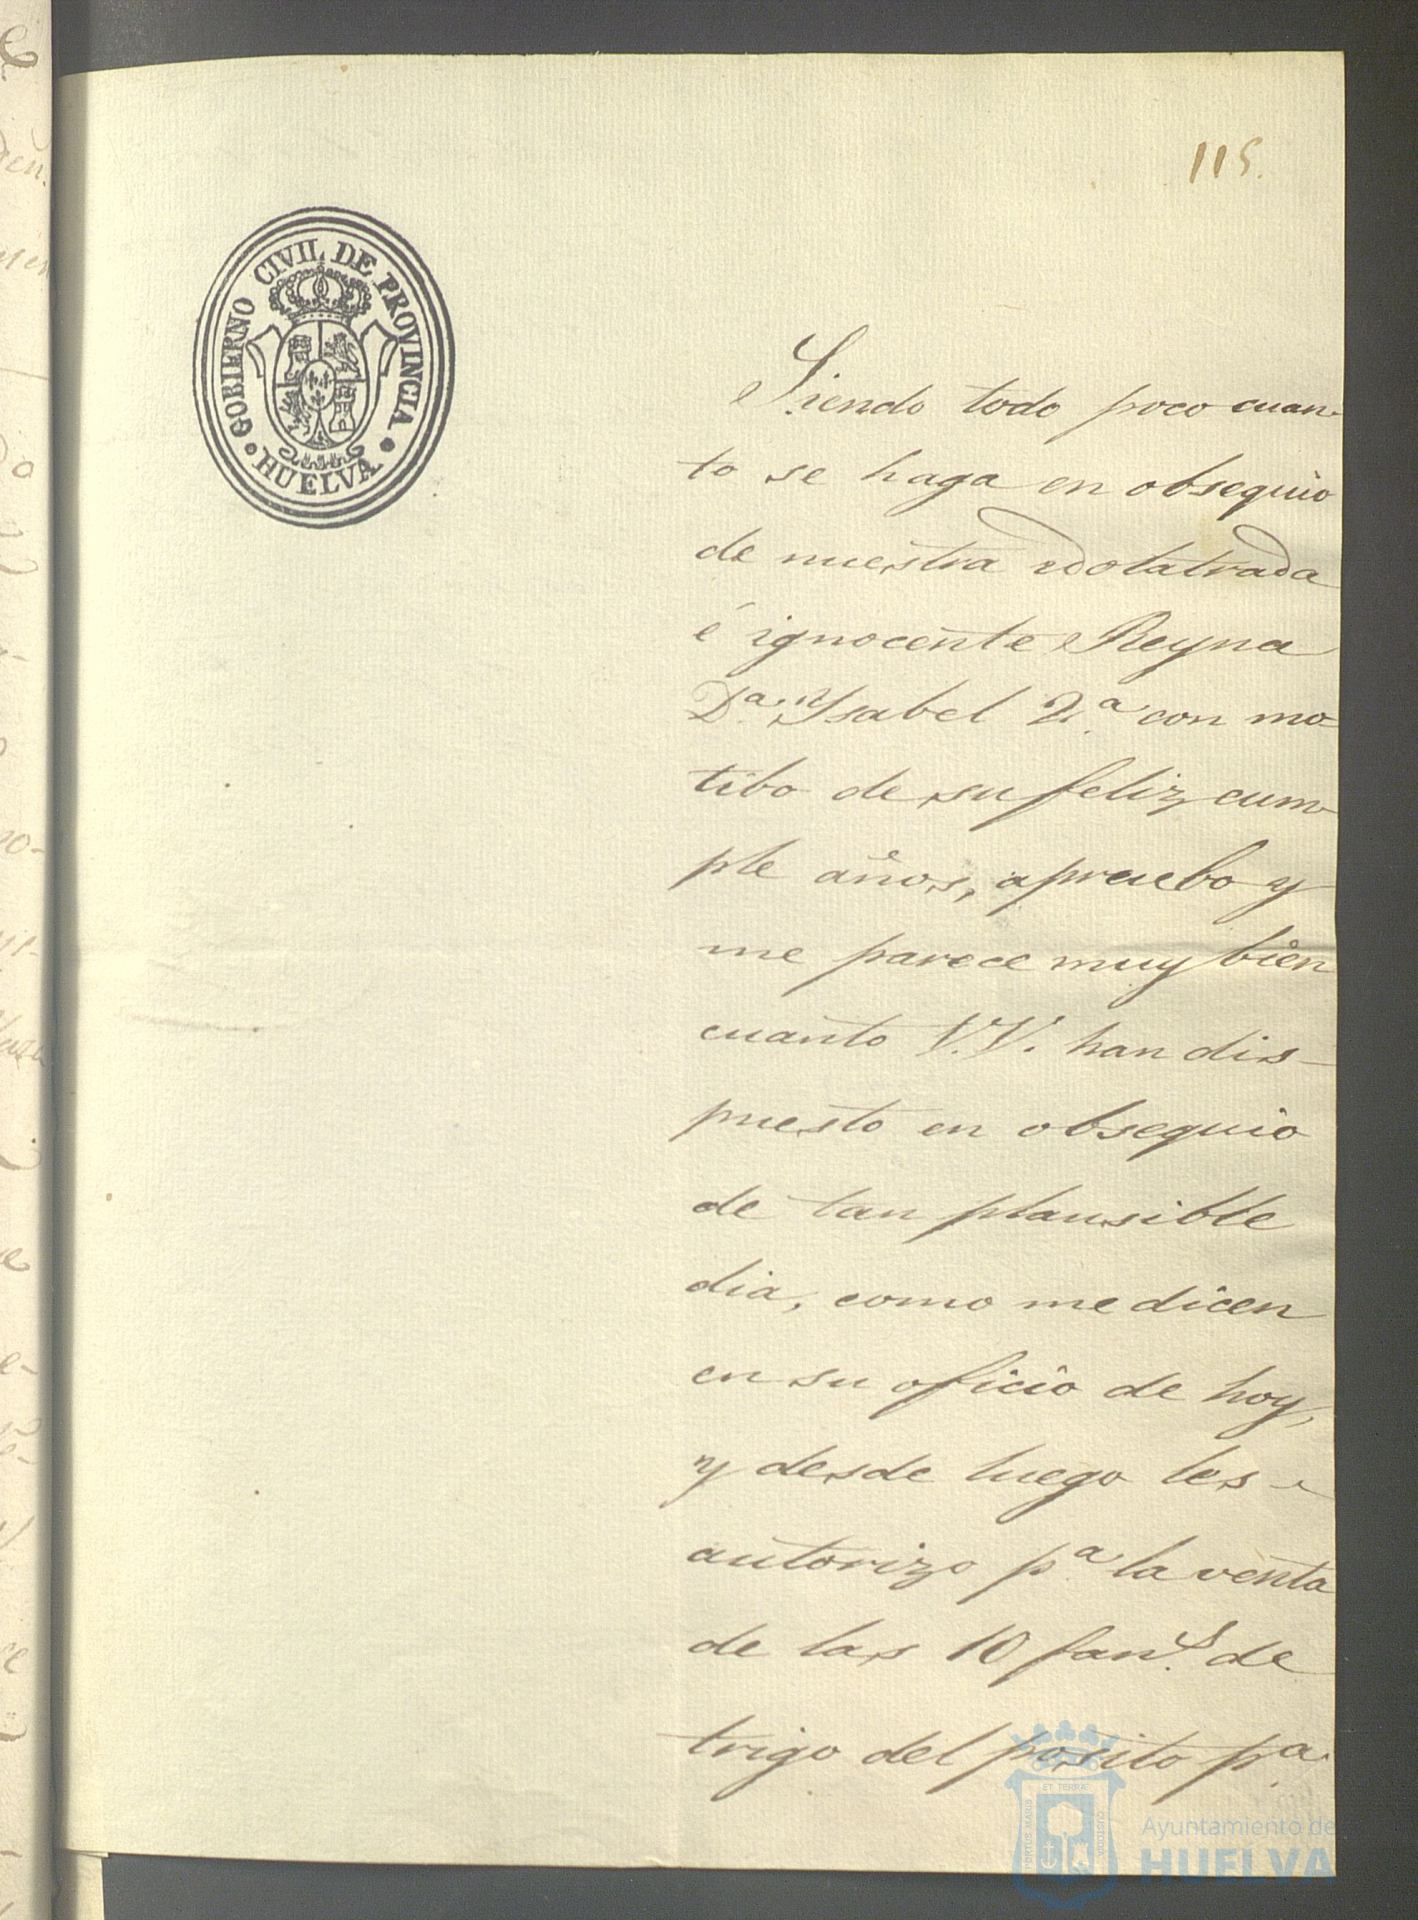 115.
GOBIERNO CIVIL DE PROVINCIA
HUELVA
Siendo todo poco cuan-
to se haga en obsequio
de nuestra ydolatrada
é ignocente Reyna
D.ª Ysabel 2.ª con mo-
tibo de su feliz cum-
ple años, apruebo y
me parece muy bien
cuanto V.V. han dis-
puesto en obsequio
de tan plausible
dia, como me dicen
en su oficio de hoy,
y desde luego les
autorizo p.ª la venta
de las 10 fan.s de
trigo del posito p.ª
ET TERRÆ
PORTUS MARIS
CUSTODIA
Ayuntamiento de
HUELVA